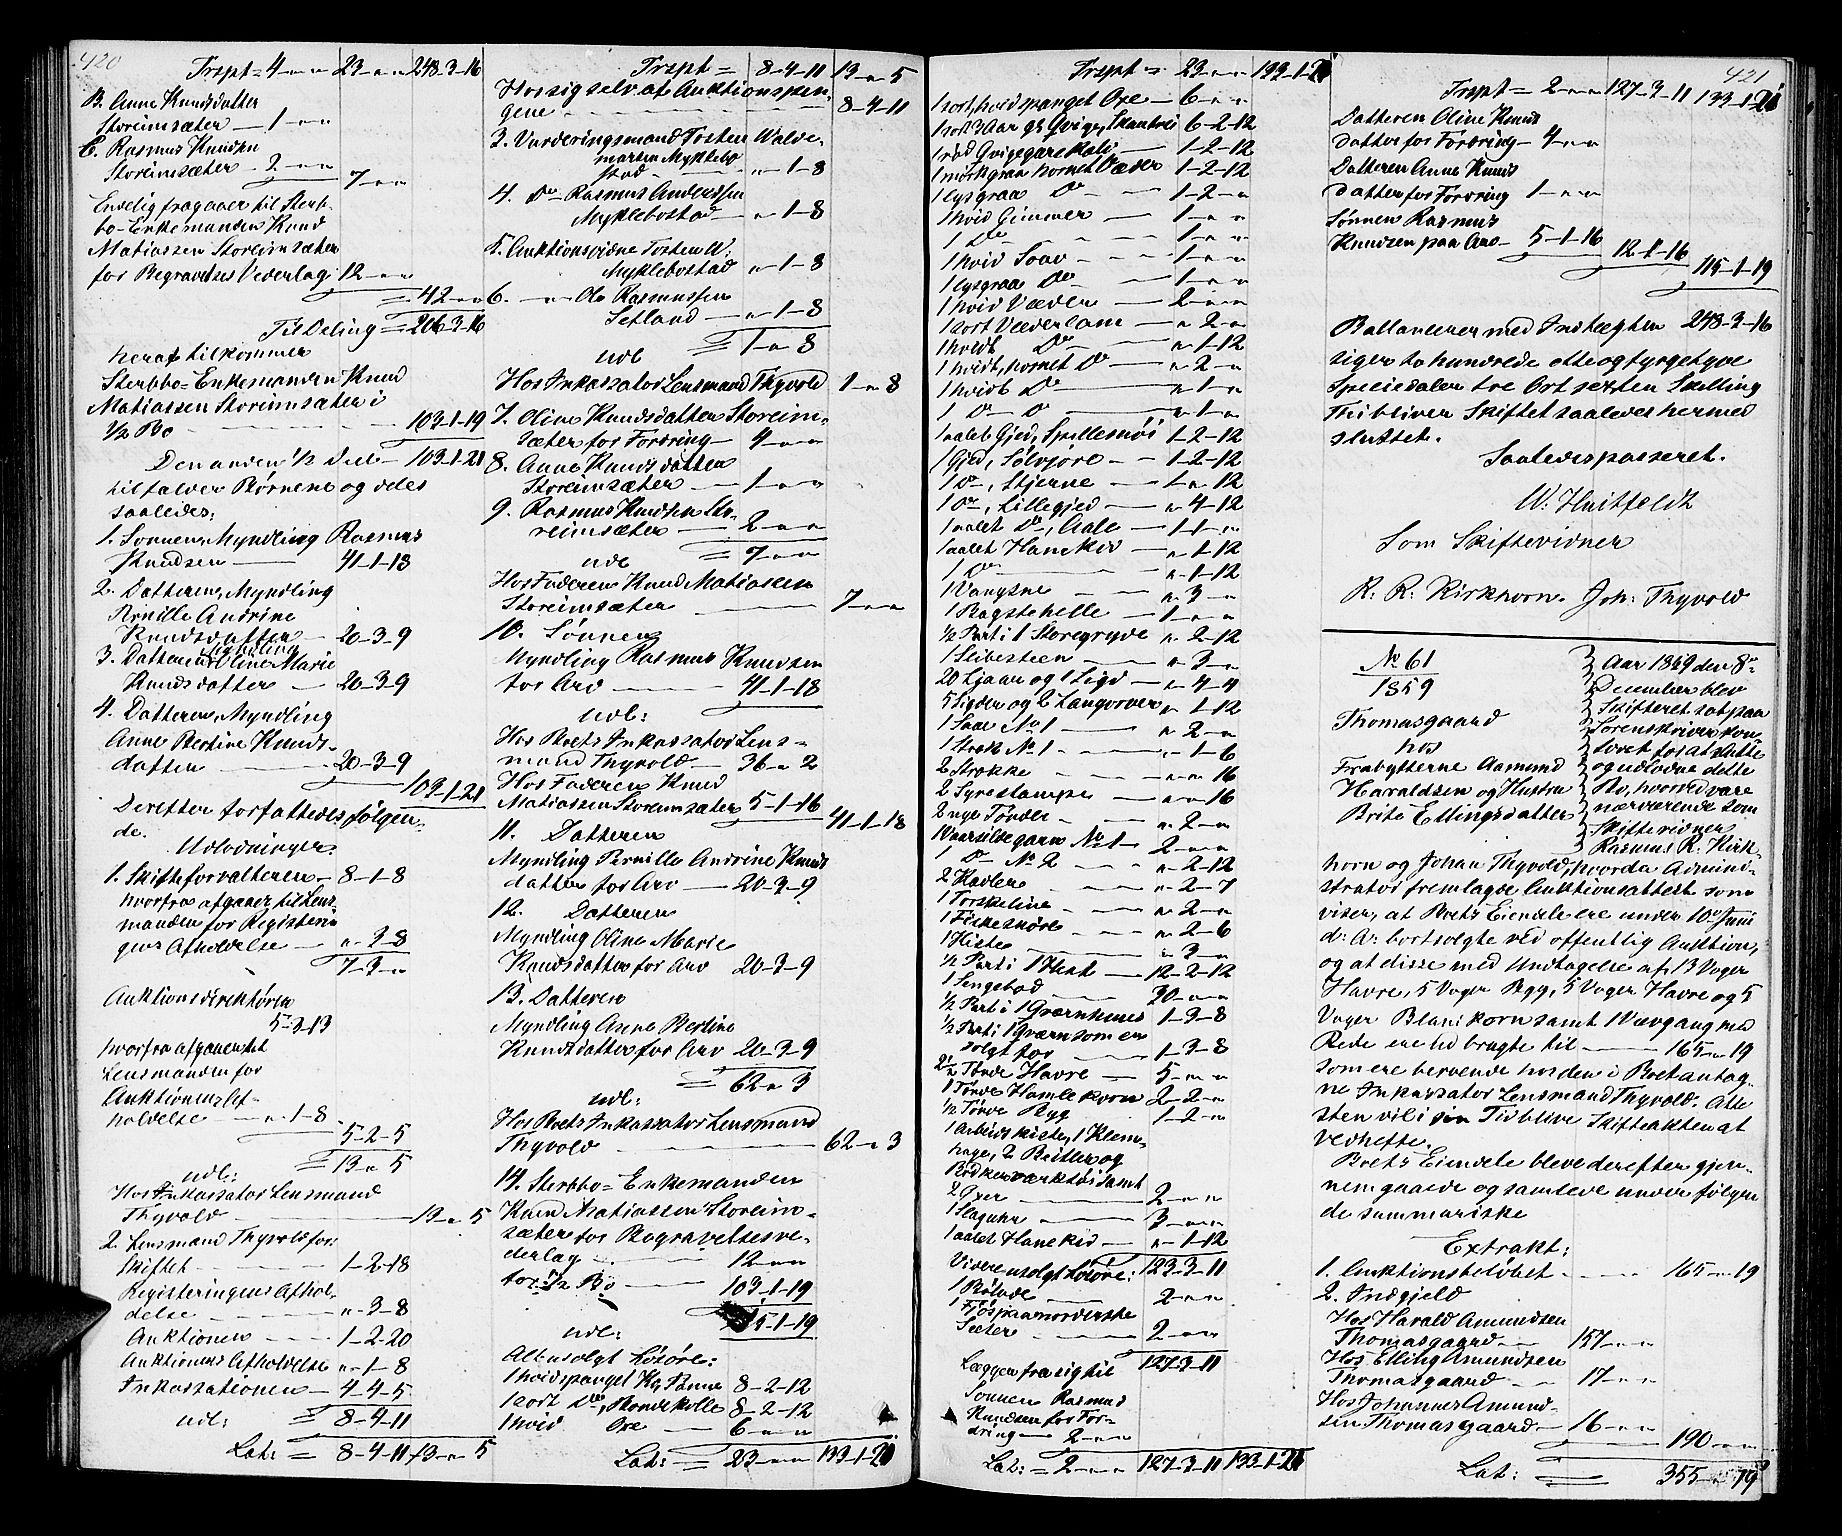 420
Trspt = 4 - " - " 23 - " - " 248-3-16
B. Anne Knudsdatter
Storeimsæter — 1 - " - "
C. Rasmus Knudsen
Storeimsæter — 2 - " - "
7 - " - "
Endelig fragaaer til Sterb-
bo-Enkemanden Knud
Matiassen Storeimsæter
for Begravelses Vederlag 12 - " - "
= 42 - " - "
Til Deling = 206-3-16
heraf tilkommer
Sterbbo-Enkemanden Knud
Matiassen Storeimsæter i
½ Bo 103-1-19
Den anden ½ Deel — 103-1-21
tilfalder Børnene og deles
saaledes:
1. Sønnen, Myndling Rasmus
Knudsen — 41-1-18
2. Datteren, Myndling
Pernille Andrine
Knudsdatter — 20-3-9
Myndling
3. Datteren Oline Marie
Knudsdatter — 20-3-9
4. Datteren, Myndling
Anne Bertine Knuds-
datter — 20-3-9
103-1-21
Derefter forfattedes følgen-
de.
Udlodninger:
1. Skifteforvalteren — 8-1-8
hvorfra afgaaer til Lens-
manden for Registerin
gens Afholdelse — " - 3-8
7-3-"
Auktionsdirektøren
5-3-13
hvorfra afgaaer til
Lensmanden for
Auktionens Af-
holdelse — " - 1-8
5-2-5
= 13 - " 5
udl:
Hos Inkassator Lensmand
Thyvold — 13 - " 5
2. Lensmand Thyvold for:
Skiftet — 1-2-18
Registeringens Afhol-
delse — " - 3-8
Auktionen — 1-2-20
Auktionens Afholdelse " - 1-8
Inkassationen — 4-4-5
udl: = 8-4-11
Lat: = 8-4-11 13 - " 5
Trspt = 8-4-11 13 - " 5
Hos sig selv af Auktionspen-
gene 8-4-11
3. Vurderingsmand Tosten Walde-
marsen Myklebo
stad — " - 1-8
4. Do Rasmus Anderssen
Myklebostad — " - 1-8
5. Auktionsvidne Tosten W.
Myklebostad " - 1-8
6. — " — Ole Rasmussen
Setland — " - 1-8
udl = 1 - " 8
Hos Inkassator Lensmand Thyvold 1 - " 8
7. Oline Knudsdatter Storeim-
sæter for Fordring — 4 - " - "
8. Anne Knudsdatter
Storeimsæter — 1 - " - "
9. Rasmus Knudsen Sto-
reimsæter — 2 - " - "
udl = 7 - " - "
Hos Faderen Knud Matiassen
Storeimsæter — 7 - " - "
10. Sønnen
Myndling Rasmus Knudsen
for Arv — 41-1-18
udl:
Hos Boets Inkassator Lens-
mand Thyvold — 36 - " 2
Hos Faderen Knud
Matiassen Storeimsæter 5-1-16
41-1-18
11. Datteren
Myndling Pernille Andrine Knuds
datter for Arv — 20-3-9
12. Datteren
Myndling Oline Marie
Knudsdatter for Arv 20-3-9
13. Datteren
Myndling Anne Bertine
Knudsdatter for Arv 20-3-9
= 62 - " 3
udl:
Hos Boets Inkassator Lensmand
Thyvold — 62 - " 3
14. Sterbbo-Enkemanden
Knud Matiassen Storeim-
sæter for Begravelsesve-
derlag — 12 - " - "
for ½ Bo — 103-1-19
5-1-19
udl:
Af usolgt Løsøre:
1 hvidspanget Ko, Panne 8-2-12
1 sort Do, Skoukolle 8-2-12
1 hvid Oxe — 6 - " - "
Lat: = 23 - " - " 133-1-20
Trspt = 23 - " - " 133-1-20
1 sort, hvidspanget Oxe — 6 - " - "
1 sort 3 Aar gl. Qvige, 6-2-12
1 rød Qvigegare 1-2-12
1 mørkgraa hornet Væder 1-2-12
1 lysgraa Do — 1-2-"
1 hvid Gimmer — 1 - " - "
1 Do — 1 - " - "
1 hvid Sou — 1 - " - "
1 lysgraa Do — 1 - " - "
1 hvid Væder — 2 - " - "
1 sort Væderlam — " 2 - "
1 hvidt Do — " 1-12
1 hvidt, hornet Do — " 2 - "
1 hvidt Do — " 1 - "
1 Do Do — " 1 - "
1 aalet Gjed, Spillemøi 1-2-12
1 Gjed, Sølvjore — 1-2-12
1 Do, Stjerne — 1 - " 12
1 Do, Lillegjed — " 4-12
1 aalet Do, Aale — 1-1-"
1 aalet Hanekid — " 1-12
1 Do — " 1-12
1 Vangsne — " 3 - "
1 Bagstehelle — 1 - " - "
½ Part i 1 Storegryde " 2-12
1 Slibesteen — " 3 - "
20 Ljaar og 1 Sigd — " 4-4
5 Sigder og 2 Langorver " 1-12
1 Saae No 1 — " 2 - "
1 Strøk No 1 — " 1-6
2 Strøkke — " " 16
2 Syrestampe — " " 16
2 nye Tønder — " 2 - "
1 Vaarsildegarn No 1 — 2 - " - "
1 Do No 2 — " 2-12
2 Kavler — " 2-7
1 Torskeline — " 2 - "
1 Fiskesnøre — " 2-6
1 Kiste — " 3 - "
½ Part i 1 Hest — 12-2-12
1 Sengebod — 30 - " - "
½ Part i 1 Qværnhuus 1-3-8
½ Part i 1 Qværn som er
solgt for — 1-3-8
2½ Tønde Havre — 5 - " - "
1 Tønde Hamlekorn 2-2-"
½ Tønde Byg — 1-2-"
1 Arbeidskiste, 1 Klem-
hage, 2 Beitler og
Bødkerværktøi samt
2 Øxer — 2 - " - "
1 Slaguhr — 3 - " - "
1 aalet Hanekid — " 1-12
Videre usolgt Løsøre: 123-3-11
1 Bølade — 2 - " - "
1 Fjøs paa nordenste
Sæter — 2 - " - "
127-3-11
Lægges fra sig til
Sønnen Rasmus
Knudsen for For-
dring — 2 - " - "
Lat: = 2 - " - " 127-3-11 133-1-20
421
Trspt = 2 - " - " 127-3-11 133-1-20
Datteren Oline Knuds
datter for Fordring — 4 - " - "
Datteren Anne Knuds
datter for Fordring 1 - " - "
Sønnen Rasmus
Knudsen paa Arv — 5-1-16
12-1-16
115-1-19
Ballancerer med Indtægten 248-3-16
siger to hundrede otte og fyrgetyve
Speciedaler tre Ort sexten Skilling
Thi bliver Skiftet saaledes hermed
sluttet.
Saaledes passeret.
W. Huitfeldt
Som Skiftevidner
R. R. Kirkhorn. Joh: Thyvold
No 61
1859
Thomasgaard
hos
Fraflytterne Aamund
Haraldsen og Hustru
Brite Ellingsdatter
Aar 1869 den 8de
December blev
Skifteret sat paa
Sorenskriverkon-
toret for at slutte
og udlodde dette
Bo, hvorved vare
nærværende som
Skiftevidner
Rasmus R. Kirk-
horn og Johan Thyvold, hvorda Admini-
strator fremlagde Auktionsattest som
viser, at Boets Eiendele ere under 10de Juni
d: A: bortsolgte ved offentlig Auktion,
og at disse med Undtagelse af 13 Voger
Havre, 5 Voger Byg, 5 Voger Havre og 5
Voger Blandkorn samt 1 Vævgang med
Rede ere udbragte til — 165 - " 19
som ere beroende hos den i Boet antag-
ne Inkassator Lensmand Thyvold. Atte
sten vil i sin Tid blive Skifteakten at
vedhefte.
Boets Eiendele bleve derefter gjen-
nemgaaede og samlede under følgen
de summariske
Extrakt:
1. Auktionsbeløbet — 165 - " 19
2. Indgjeld
Hos Harald Amundsen
Thomasgaard — 157 - " - "
Hos Elling Amundsen
Thomasgaard — 17 - " - "
Hos Johannes Amund-
sen Thomasgaard — 16 - " - "
190 - " - "
Lat: = 355 - " 19